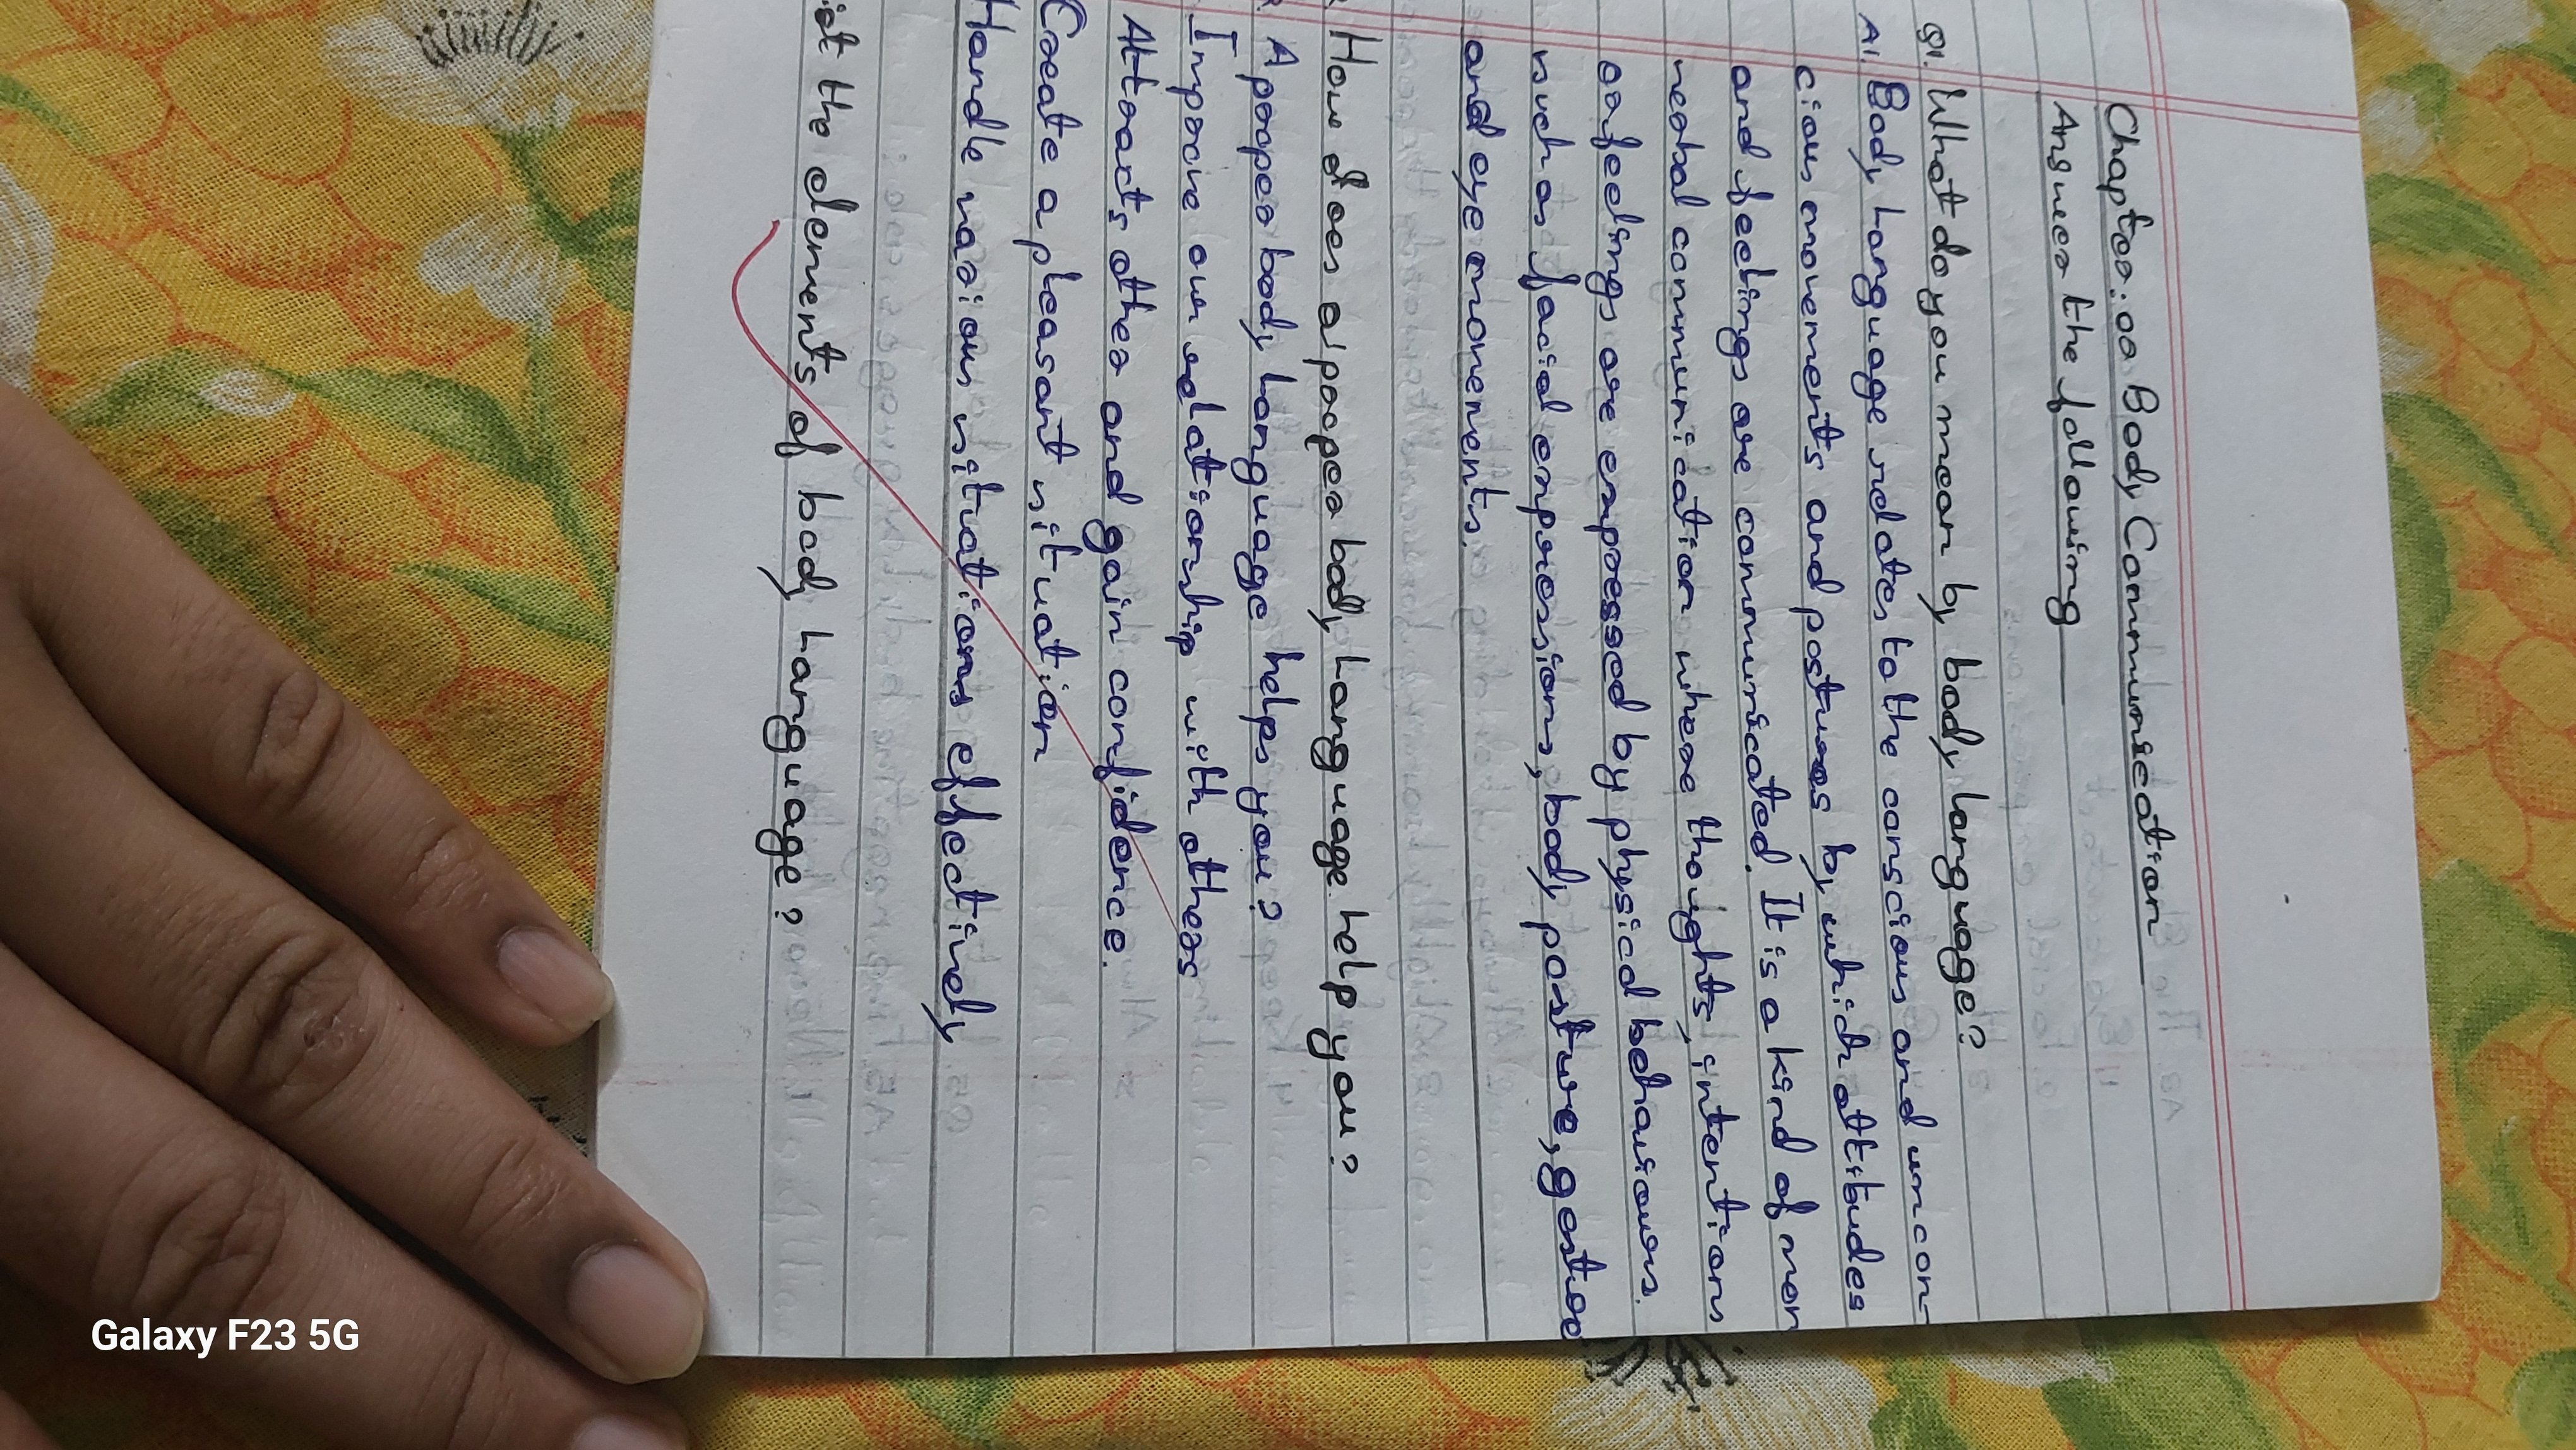 Chapter:02 Body Communication
Answer the following
Q1. What do you mean by body language?
A1. Body Language relates to the conscious and uncon-
cious movements and postures by which attibudes
and feelings are communicated. It is a kind of non
verbal communication where thoughts, intentions
or feelings are expressed by physical behaviours.
such as facial expressions, body posture, gestur
and eye movements.
How does a proper body Language help you?
A proper body Language helps you?
Improve our relationship with others
Attracts other and gain confidence.
Create a pleasant situation
Handle various situations effectively
ist the elements of body Language?
Galaxy F23 5G